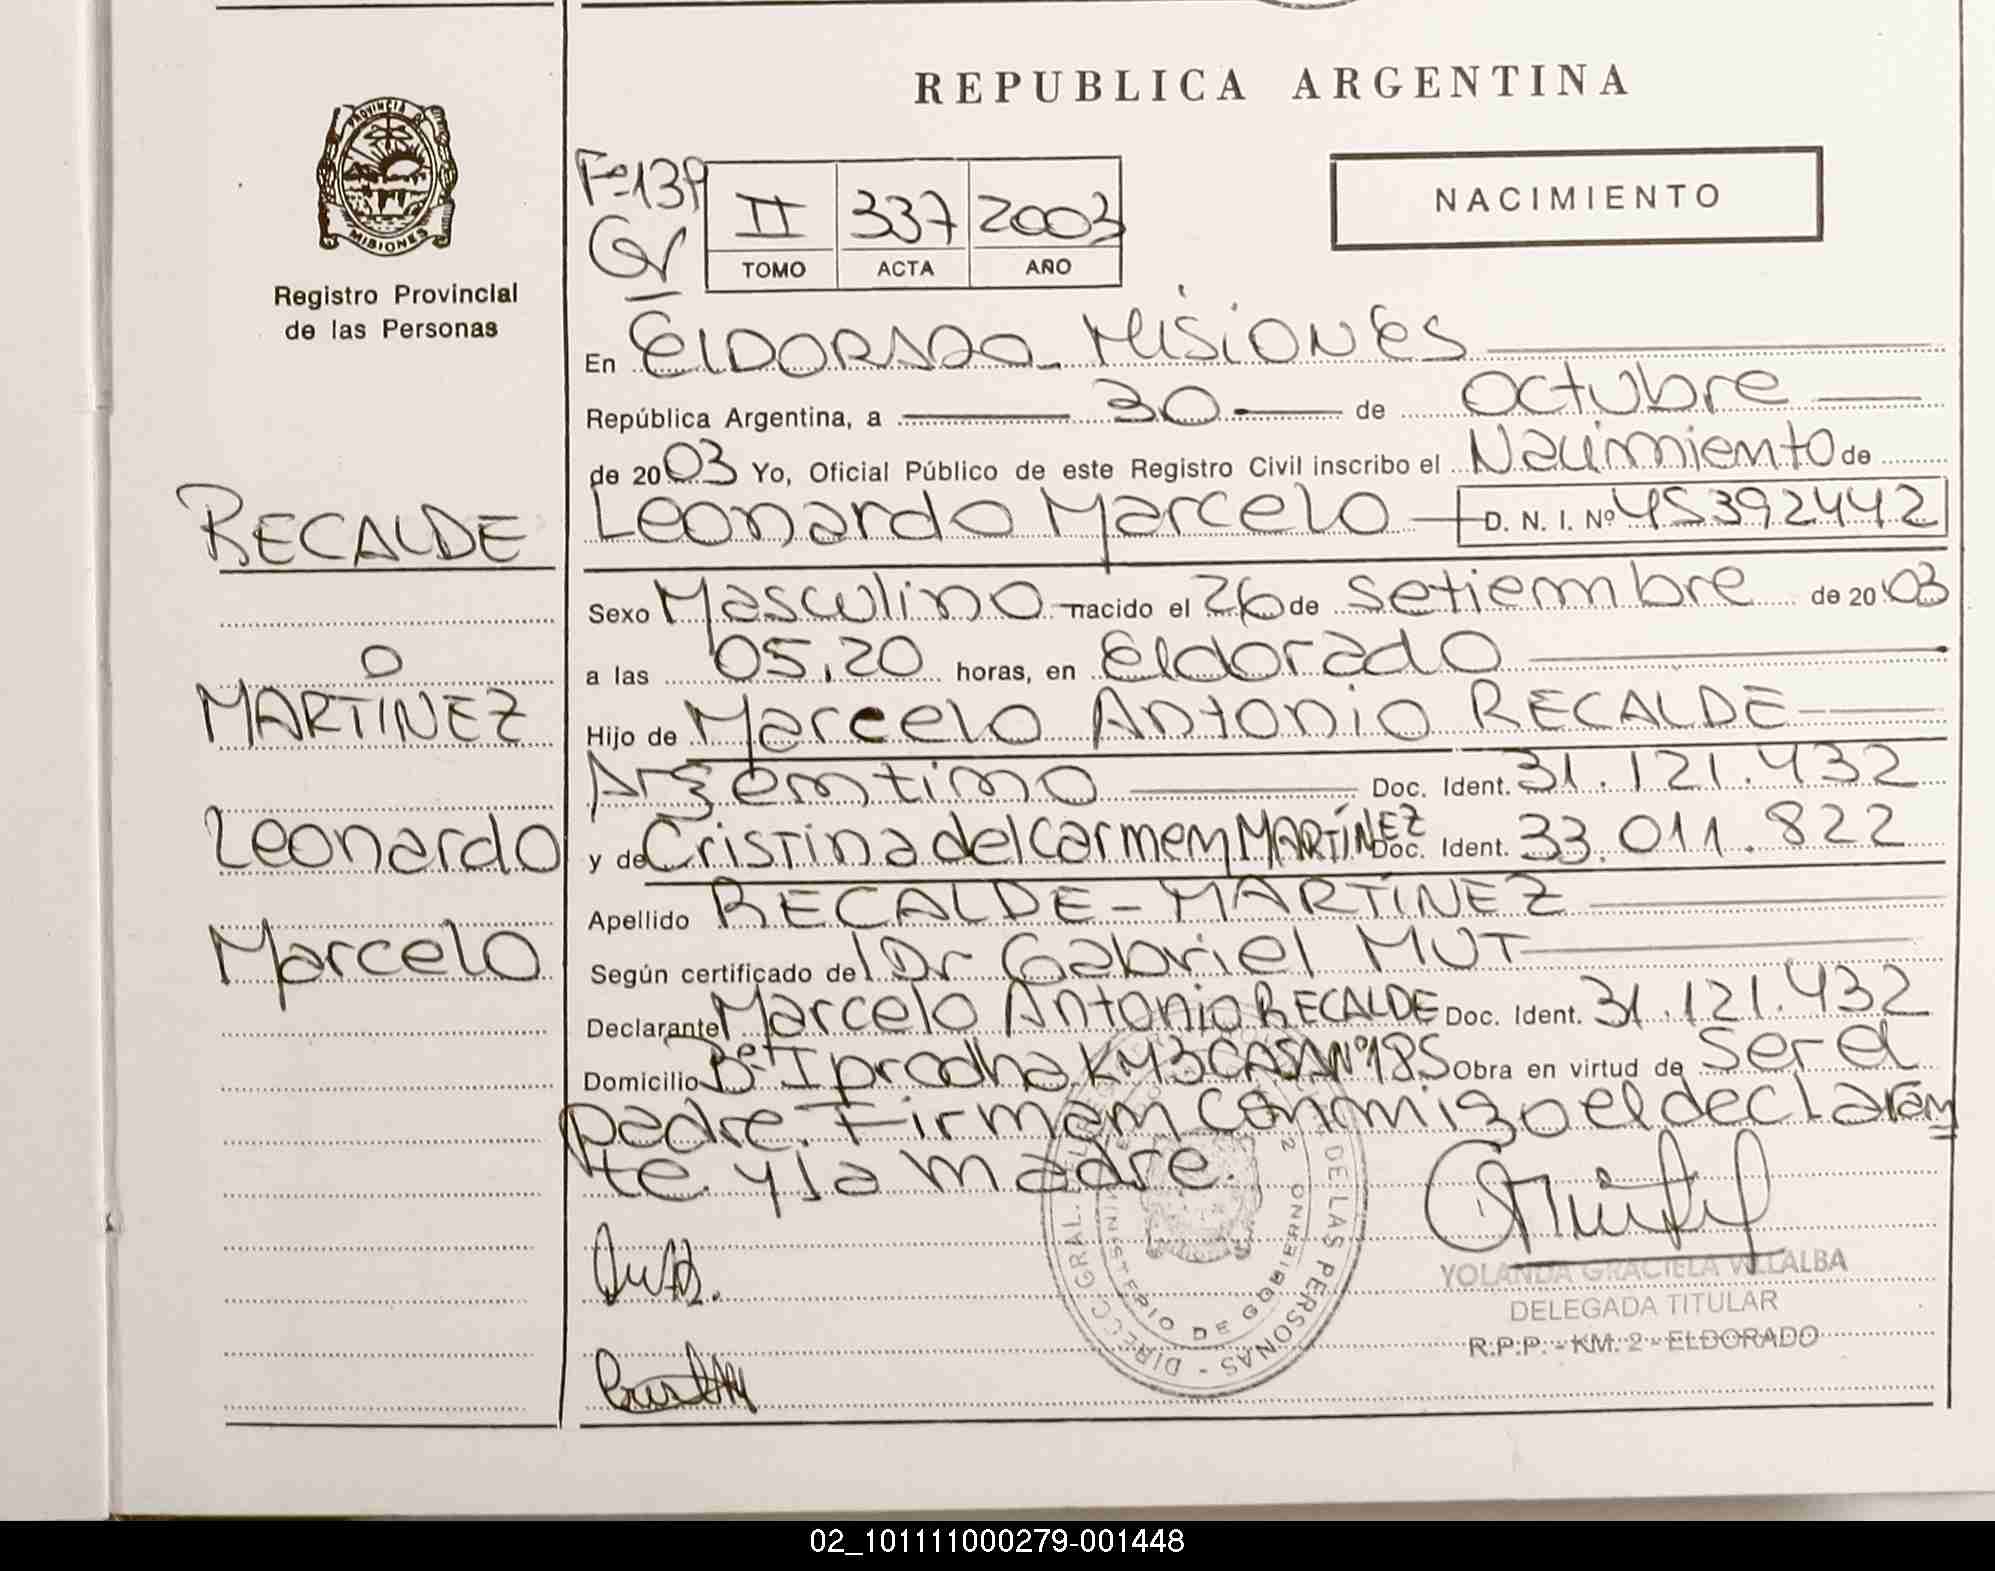 REPUBLICA ARGENTINA
PROVINCIA DE
MISIONES
Registro Provincial
de las Personas
NACIMIENTO
Fº 139
II 337 2003
TOMO ACTA AÑO
En ELDORADO MISIONES
República Argentina, a 30 de Octubre
de 2003 Yo, Oficial Público de este Registro Civil inscribo el Nacimiento de
Leonardo Marcelo D. N. I. Nº 45392442
Sexo Masculino nacido el 26 de setiembre de 2003
a las 05,20 horas, en Eldorado
Hijo de Marcelo Antonio RECALDE
Argentino Doc. Ident. 31.121.432
y de Cristina del Carmen MARTÍNEZ Doc. Ident. 33.011.822
Apellido RECALDE - MARTÍNEZ
Según certificado del Dr Gabriel MUT
Declarante Marcelo Antonio RECALDE Doc. Ident. 31.121.432
Domicilio Bº I prodha KM3 CASA Nº 185 Obra en virtud de ser el
padre. Firman conmigo el declaran
te y la madre.
RECALDE
O
MARTINEZ
Leonardo
Marcelo
DIRECC. GRAL. DE LAS PERSONAS
MINISTERIO DE GOBIERNO
YOLANDA GRACIELA VILLALBA
DELEGADA TITULAR
R.P.P. - KM. 2 - ELDORADO
02_101111000279-001448